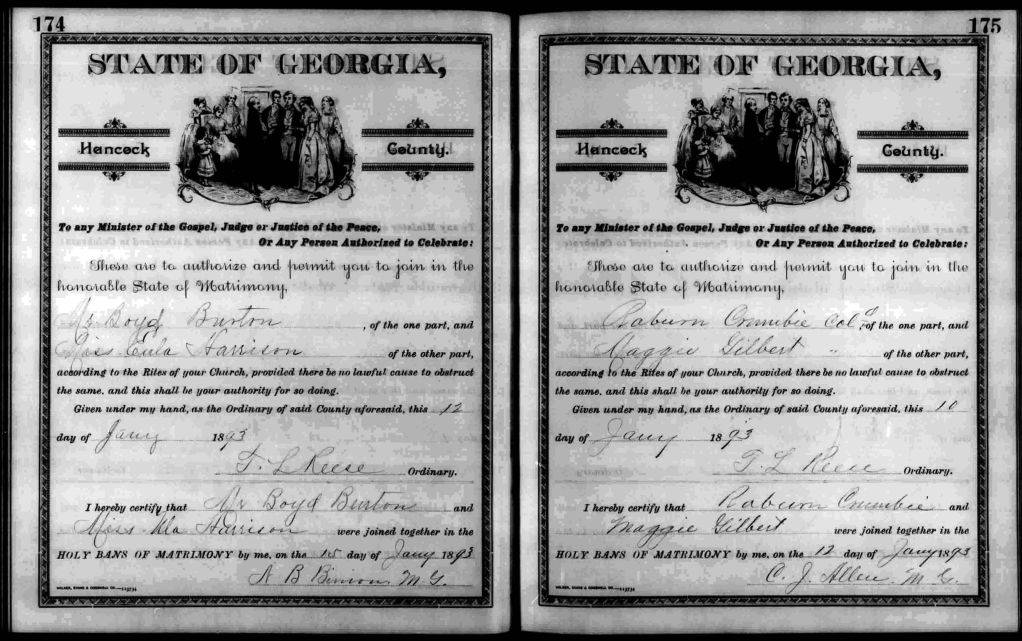 174
STATE OF GEORGIA,
Hancock County.
To any Minister of the Gospel, Judge or Justice of the Peace,
Or Any Person Authorized to Celebrate:
These are to authorize and permit you to join in the
honorable State of Matrimony,
Mr Boyd Burton , of the one part, and
Miss Eula Harrison of the other part,
according to the Rites of your Church, provided there be no lawful cause to obstruct
the same, and this shall be your authority for so doing.
Given under my hand, as the Ordinary of said County aforesaid, this 12
day of Jany 1893
T. L Reese Ordinary.
I hereby certify that Mr Boyd Burton and
Miss Harrison were joined together in the
HOLY BANS OF MATRIMONY by me, on the 15 day of Jany 1893
N B Binion M. G.
175
STATE OF GEORGIA,
Hancock County.
To any Minister of the Gospel, Judge or Justice of the Peace,
Or Any Person Authorized to Celebrate:
These are to authorize and permit you to join in the
honorable State of Matrimony,
Raburn Crumbie cold , of the one part, and
Maggie Gilbert " of the other part,
according to the Rites of your Church, provided there be no lawful cause to obstruct
the same, and this shall be your authority for so doing.
Given under my hand, as the Ordinary of said County aforesaid, this 10
day of Jany 1893
T. L Reese Ordinary.
I hereby certify that Raburn Crumbie and
Maggie Gilbert were joined together in the
HOLY BANS OF MATRIMONY by me, on the 12 day of Jany 1893
C. J. Allen M. G.